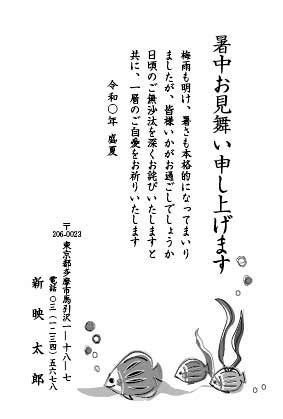 暑中お見舞い申し上げます
梅雨も明け、暑さも本格的になってまいり
ましたが、皆様いかがお過ごしでしょうか
日頃のご無沙汰を深くお詫びいたしますと
共に、一層のご自愛をお祈りいたします
令和〇年 盛夏
〒206-0023
東京都多摩市馬引沢一―十八―七
電話 〇三(一二三四)五六七八
新映太郎